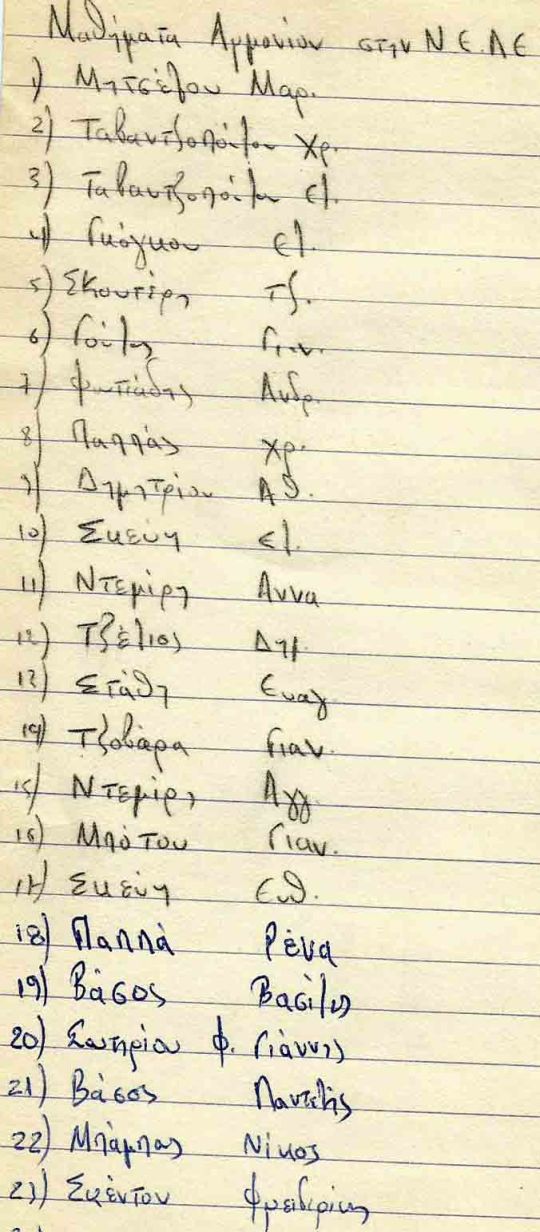 Μαθήματα Αρμονίου στην Ν Ε Λ Ε
1) Μητσέλου Μαρ.
2) Ταβαντζοπούλου Χρ.
3) Ταβαντζοπούλου Ελ.
4) Γκόγκου Ελ.
5) Σκουτέρη Τζ.
6) Γούλης Γιαν.
7) Φωτιάδης Ανδρ.
8) Παππάς Χρ.
9) Δημητρίου Αθ.
10) Σκεύη Ελ.
11) Ντεμίρη Αννα
12) Τζέλιος Δημ.
13) Στάθη Ευαγ.
14) Τζοβάρα Γιαν.
15) Ντεμίρη Αγγ.
16) Μπότου Γιαν.
17) Σκεύη Ευθ.
18) Παππά Ρένα
19) Βάσος Βασίλης
20) Σωτηρίου Φ. Γιάννης
21) Βάσος Παντελής
22) Μπάμπας Νίκος
23) Σκέντου Φρειδερίκη